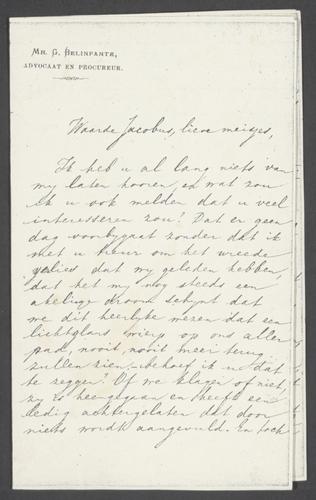 Mr. G. Belinfante,
ADVOCAAT EN PROCUREUR.
Waarde Jacobus, lieve meisjes,
Ik heb u al lang niets van
my laten hooren, en wat zou
ik u ook melden dat u veel
interesseren zou! Dat er geen
dag voorbygaat zonder dat ik
met u treur om het wreede
verlies dat wy geleden hebben,
dat het my nog steeds een
akelige droom schynt dat
we dit heerlyke wezen dat een
lichtglans wierp op ons aller
pad, nooit, nooit meer terug
zullen zien, behoef ik u dat
te zeggen? Of we klagen of niet,
zy is heengegaan en heeft een
ledig achtergelaten dat door
niets wordt aangevuld. En toch